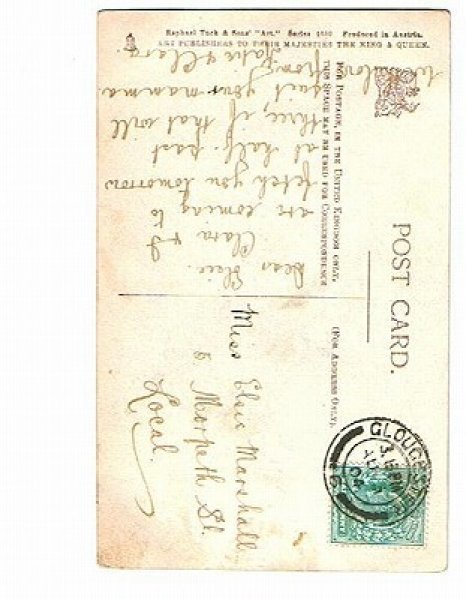 Raphael Tuck & Sons' "Art." Series 1430 Produced in Austria.
ART PUBLISHERS TO THEIR MAJESTIES THE KING & QUEEN.
POST CARD.
FOR POSTAGE, IN THE UNITED KINGDOM ONLY,
THIS SPACE MAY BE USED FOR CORRESPONDENCE
(FOR ADDRESS ONLY).
Dear Elsie
Clara & I
are coming to
fetch you tomorrow
at half-past
three, if that will
suit your mamma
from
Katie & Clara
Miss Elsie Marshall
5, Morpeth St.
Local.
GLOUCESTER
04